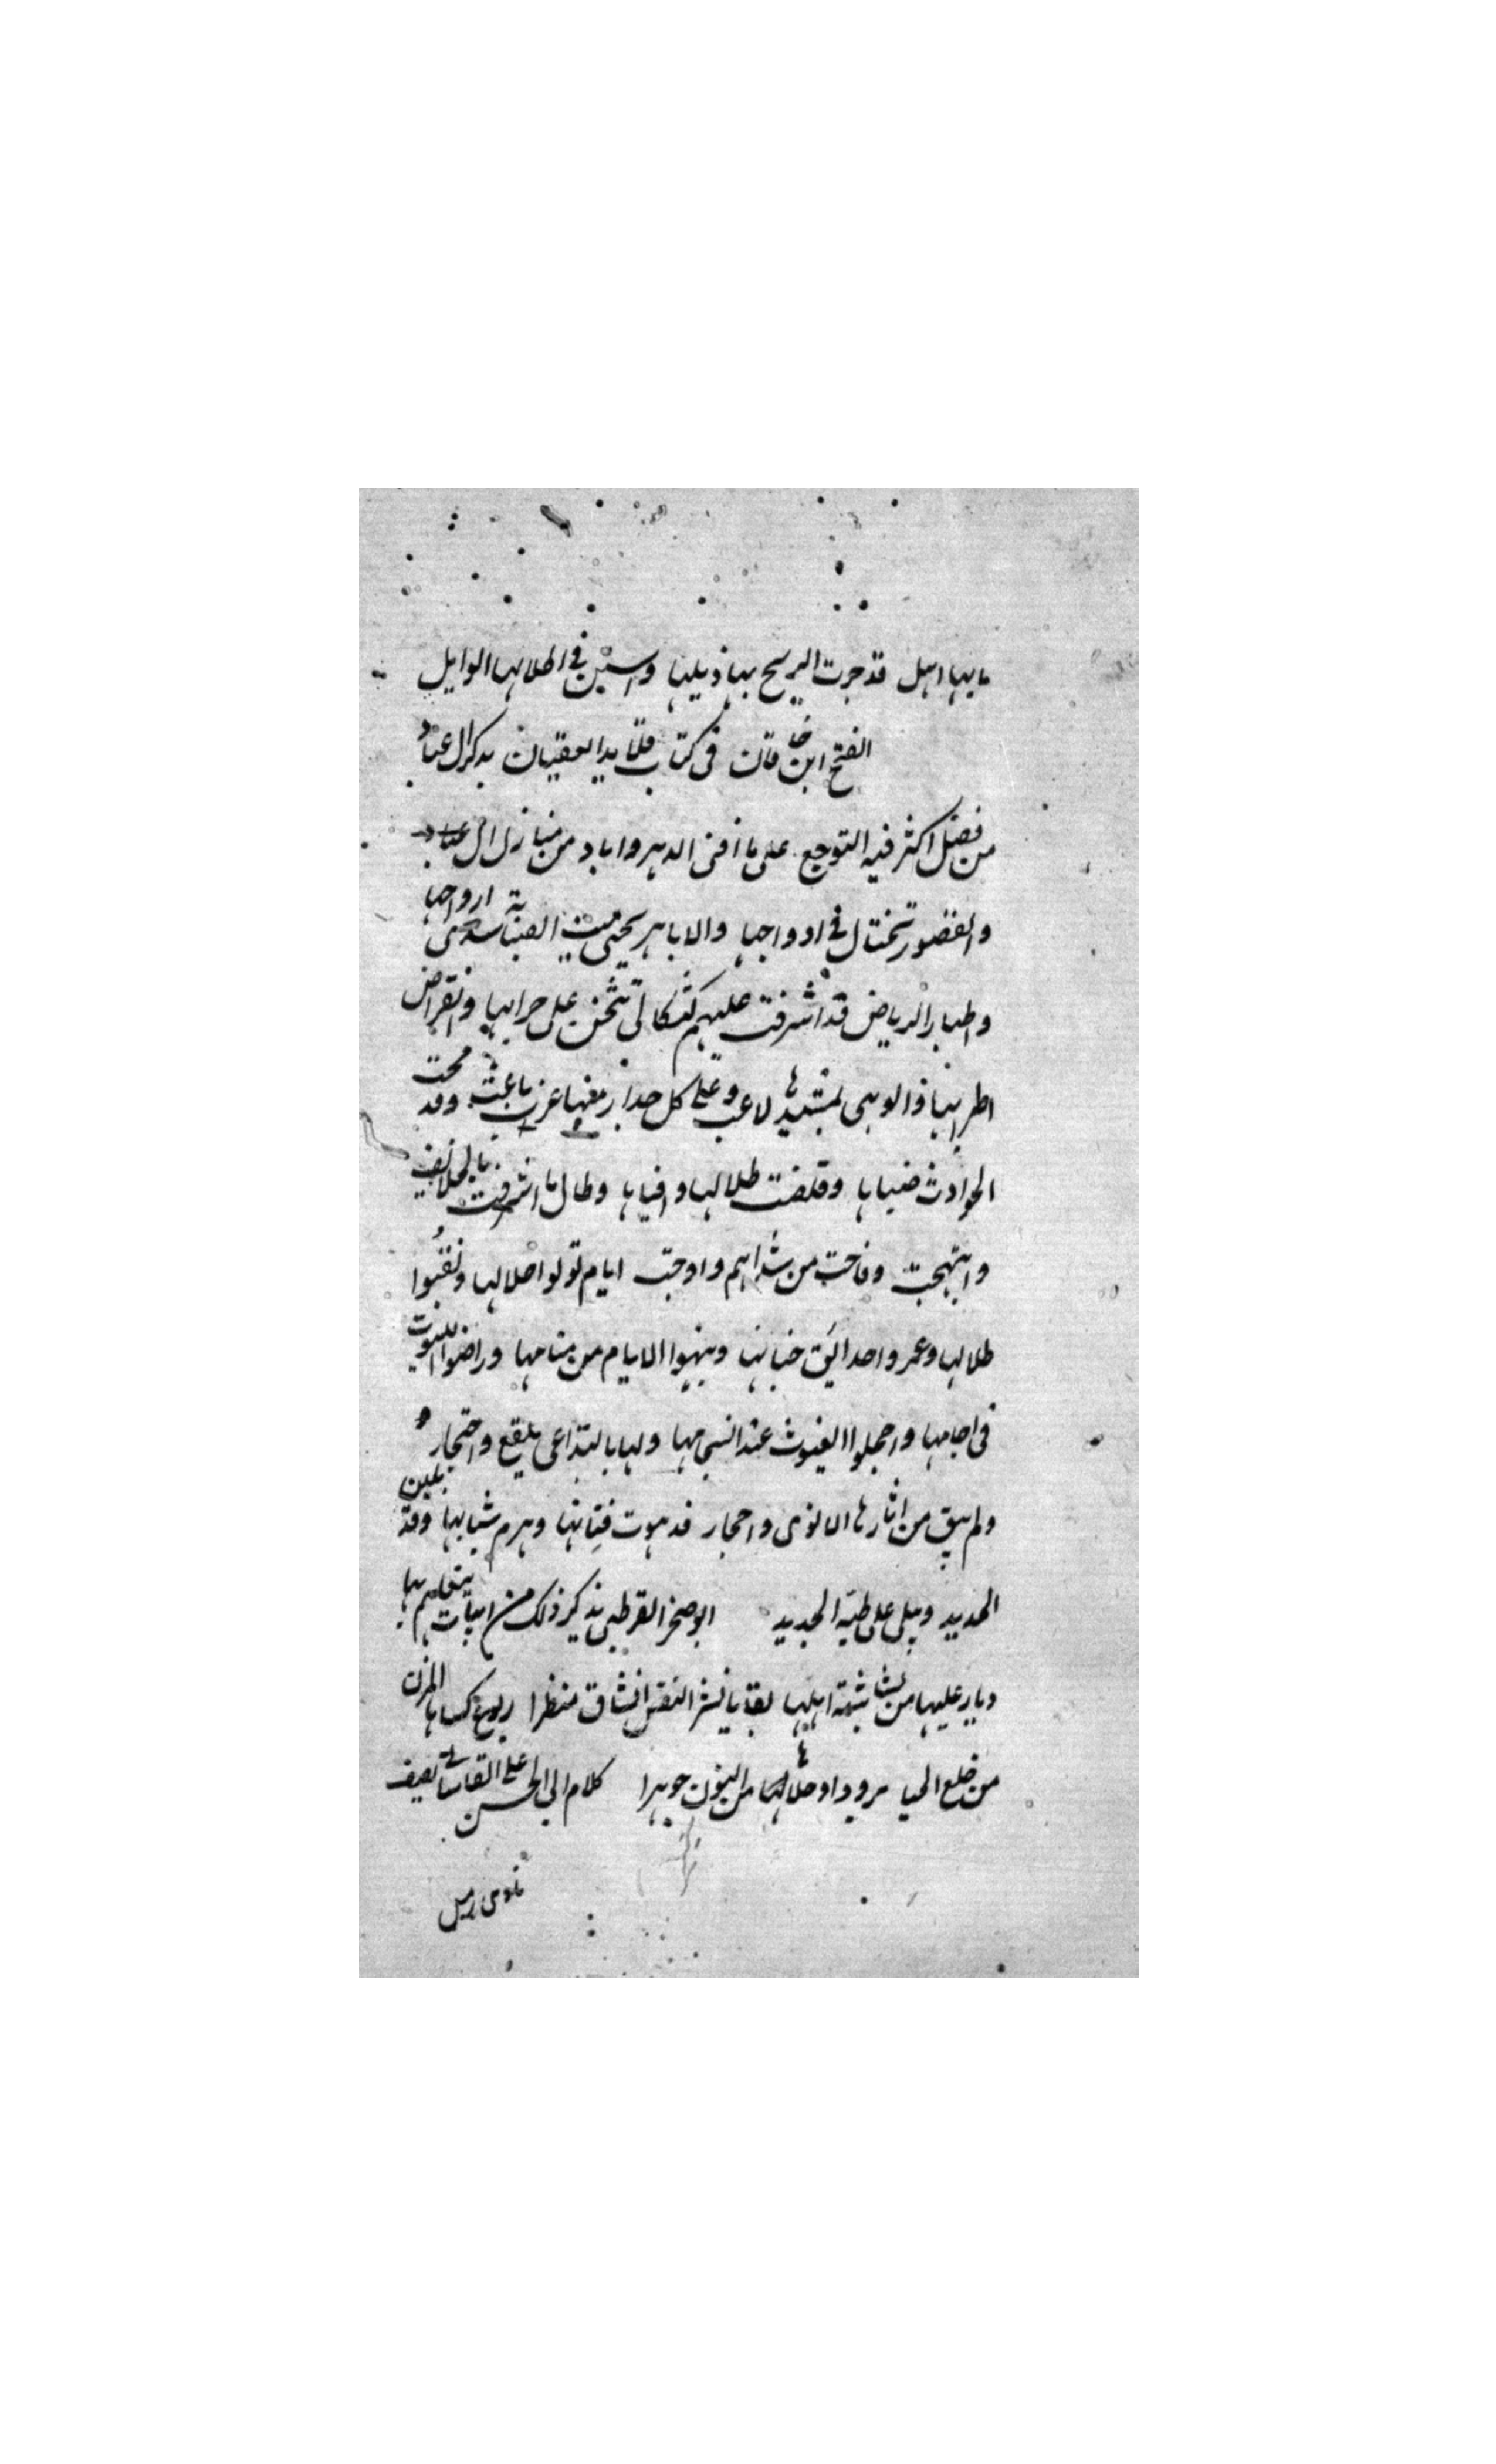 ما بها اهل قد جرت الريح بها ذيلها واسبن في اطلالها الوابل
الفتح ابن خاقان في كتاب قلايد العقيان يذكر ال عباد
من فصل اكثر فيه التوجع على ما افنى الدهر واباد من منازل ال عباد
والقصور تختال في ادواحها والاباهر يحيى ميت الصبابة شذى ارواحها
واطيار الرياض قد اشرفت عليهم كثكالى تنحن على خرابها وانقراض
اطرابها والوهى بمشيدها لاعب وعلى كل جدار منها غراب ناعب وقد محت
الحوادث ضياها وقلصت ظلالها وافياها وطال ما اشرقت بالخلايف
وابتهجت وفاحت من شذاهم وارجت ايام نزلوا خلالها وتفيوا
ظلالها وعمروا حدايق جناتها ونبهوا الايام من سناتها وراضوا الليوث
في اجامها واخجلوا الغيوث عند انسجامها ولها بالتداعي تلفع واعتجار
ولم يبق من اثارها الا نوى واحجار قد هوت قبابها وهرم شبابها وقد يلين
الحديد ويبلى على طيه الجديد ابو صخر القرطبي يذكر ذلك من ابيات يتعلم بها
ديار عليها من بشاشة اهلها بقايا تسر النفس انسا ومنظرا ربوع كساها المزن
من خلع الحيا برودا وحلاها من النور جوهرا كلام ابي الحسن علي القاساني يصف
نادى رميل